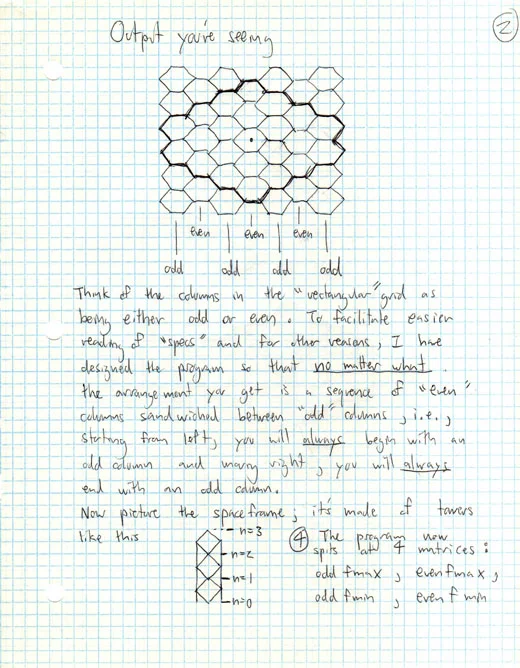 2
Output you're seeing
even even even
odd odd odd odd
Think of the columns in the "rectangular" grid as
being either odd or even. To facilitate easier
reading of "specs" and for other reasons, I have
designed the program so that no matter what
the arrangement you get is a sequence of "even"
columns sandwiched between "odd" columns, i.e.,
starting from left, you will always begin with an
odd column and moving right, you will always
end with an odd column.
Now picture the spaceframe; it's made of towers
like this
n=3
n=2
n=1
n=0
4 The program now
spits out 4 matrices:
odd fmax, even fmax,
odd fmin, even fmin